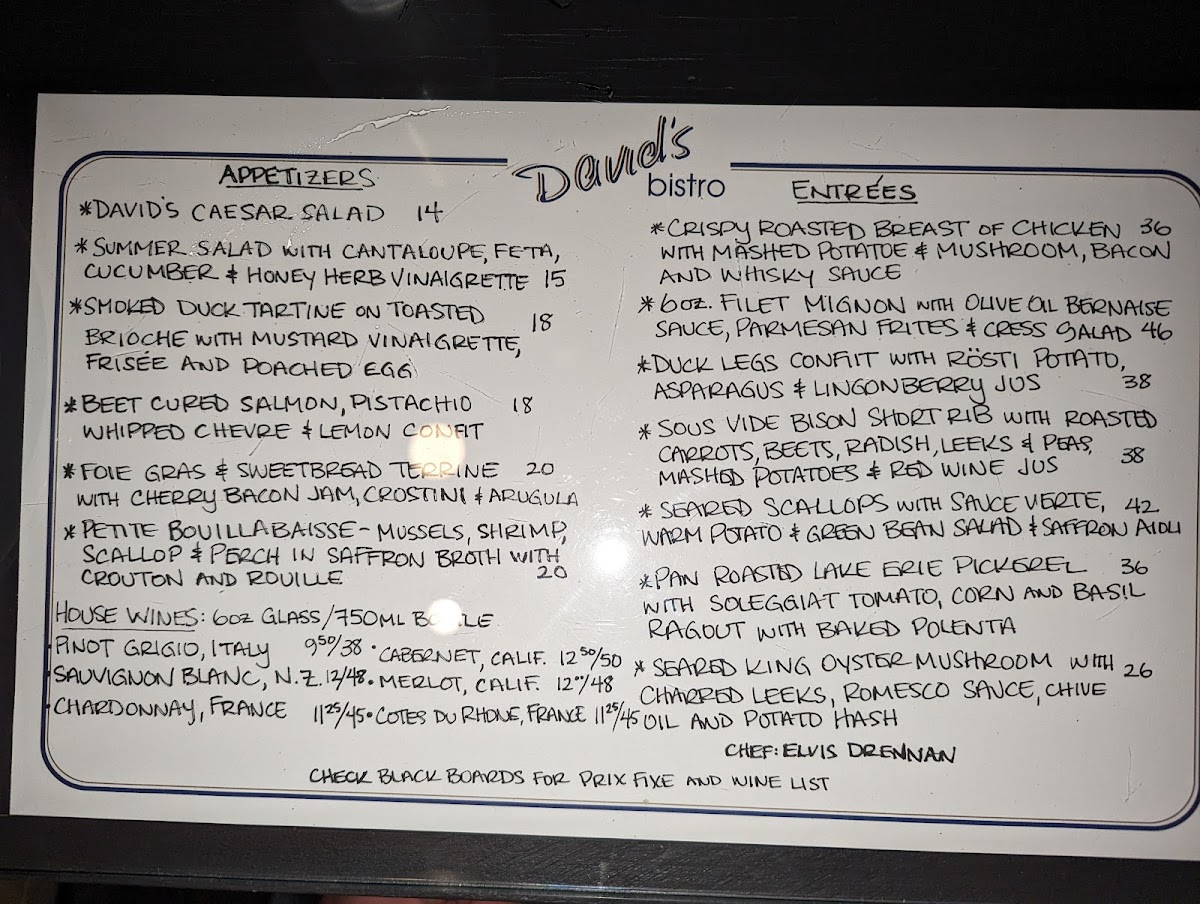 David's
bistro
APPETIZERS
*DAVID'S CAESAR SALAD 14
*SUMMER SALAD WITH CANTALOUPE, FETA,
CUCUMBER & HONEY HERB VINAIGRETTE 15
*SMOKED DUCK TARTINE ON TOASTED 18
BRIOCHE WITH MUSTARD VINAIGRETTE,
FRISÉE AND POACHED EGG
*BEET CURED SALMON, PISTACHIO 18
WHIPPED CHEVRE & LEMON CONFIT
*FOIE GRAS & SWEETBREAD TERRINE 20
WITH CHERRY BACON JAM, CROSTINI & ARUGULA
*PETITE BOUILLABAISSE - MUSSELS, SHRIMP,
SCALLOP & PERCH IN SAFFRON BROTH WITH
CROUTON AND ROUILLE 20
HOUSE WINES: 6oz GLASS/750ML BOTTLE
PINOT GRIGIO, ITALY 9.50/38 • CABERNET, CALIF. 12.50/50
SAUVIGNON BLANC, N.Z. 12/48 • MERLOT, CALIF. 12.00/48
CHARDONNAY, FRANCE 11.25/45 • COTES DU RHONE, FRANCE 11.25/45
ENTRÉES
*CRISPY ROASTED BREAST OF CHICKEN 36
WITH MASHED POTATOE & MUSHROOM, BACON
AND WHISKY SAUCE
*6oz. FILET MIGNON WITH OLIVE OIL BERNAISE
SAUCE, PARMESAN FRITES & CRESS SALAD 46
*DUCK LEGS CONFIIT WITH RÖSTI POTATO,
ASPARAGUS & LINGONBERRY JUS 38
*SOUS VIDE BISON SHORT RIB WITH ROASTED
CARROTS, BEETS, RADISH, LEEKS & PEAS,
MASHED POTATOES & RED WINE JUS 38
*SEARED SCALLOPS WITH SAUCE VERTE, 42
WARM POTATO & GREEN BEAN SALAD & SAFFRON AIOLI
*PAN ROASTED LAKE ERIE PICKEREL 36
WITH SOLEGGIAT TOMATO, CORN AND BASIL
RAGOUT WITH BAKED POLENTA
*SEARED KING OYSTER MUSHROOM WITH 26
CHARRED LEEKS, ROMESCO SAUCE, CHIVE
OIL AND POTATO HASH
CHEF: ELVIS DRENNAN
CHECK BLACK BOARDS FOR PRIX FIXE AND WINE LIST